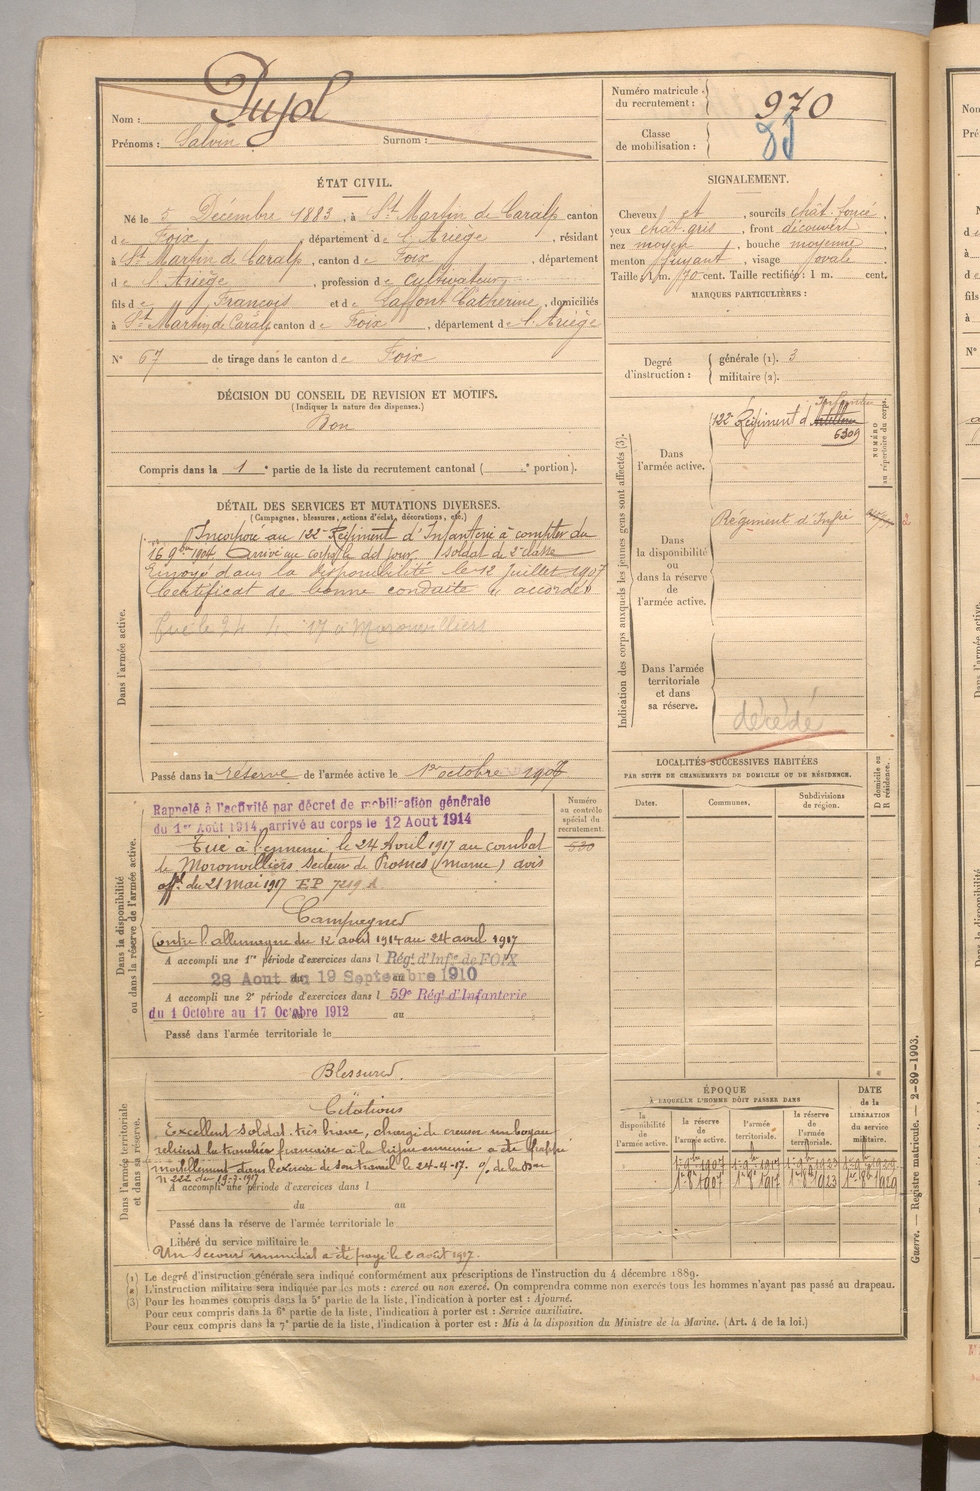 Nom : Pujol
Prénoms : Salvin Surnom :
Numéro matricule du recrutement : 970
Classe de mobilisation :
ÉTAT CIVIL.
Né le 5 Décembre 1883, à St Martin de Caralp canton
de Foix, département de l'Ariège, résidant
à St Martin de Caralp, canton de Foix, département
de l'Ariège, profession de cultivateur
fils de François et de Laffont Catherine, domiciliés
à St Martin de Caralp canton de Foix, département de l'Ariège
N° 67 de tirage dans le canton de Foix
SIGNALEMENT.
Cheveux et, sourcils chât. foncé,
yeux chât. gris, front découvert,
nez moyen, bouche moyenne,
menton fuyant, visage ovale.
Taille : 1 m. 70 cent. Taille rectifiée : 1 m. cent.
MARQUES PARTICULIÈRES :
Degré d'instruction : générale (1). 3
militaire (2).
DÉCISION DU CONSEIL DE REVISION ET MOTIFS.
(Indiquer la nature des dispenses.)
Bon
Compris dans la 1e partie de la liste du recrutement cantonal ( e portion).
DÉTAIL DES SERVICES ET MUTATIONS DIVERSES.
(Campagnes, blessures, actions d'éclat, décorations, etc.)
Dans l'armée active.
Incorporé au 122e Régiment d'Infanterie à compter du
16 9bre 1904. Arrivé au corps le dit jour, soldat de 2e classe
Envoyé dans la disponibilité le 12 Juillet 1907
Certificat de bonne conduite "accordé"
Tué le 24 4 17 à Moronvilliers
Passé dans la réserve de l'armée active le 1er octobre 1907
Indication des corps auxquels les jeunes gens sont affectés (3).
Dans l'armée active.
122e Régiment d'Artillerie Infanterie
6309
NUMÉRO au répertoire du corps.
Dans la disponibilité ou dans la réserve de l'armée active.
Régiment d'Infie
Dans l'armée territoriale et dans sa réserve.
décédé
Dans la disponibilité ou dans la réserve de l'armée active.
Rappelé à l'activité par décret de mobilisation générale
du 1er Août 1914, arrivé au corps le 12 Aout 1914
Tué à l'ennemi le 24 Avril 1917 au combat
de Moronvilliers secteur de Prosnes (Marne) avis
offel du 21 mai 1917 EP 7219 A
Campagnes
Contre l'allemagne du 12 août 1914 au 24 avril 1917
A accompli une 1re période d'exercices dans l Régt d'Infie de FOIX
28 Aout au 19 Septembre 1910
A accompli une 2e période d'exercices dans l 59e Régt d'Infanterie
du 1 Octobre au 17 Octobre 1912 au
Passé dans l'armée territoriale le
Numéro au contrôle spécial du recrutement.
530
LOCALITÉS SUCCESSIVES HABITÉES
PAR SUITE DE CHANGEMENTS DE DOMICILE OU DE RÉSIDENCE.
Dates. Communes. Subdivisions de région. D domicile ou R résidence.
Dans l'armée territoriale et dans sa réserve.
Blessures.
Citations
Excellent soldat très brave, chargé de creuser un boyau
reliant la tranchée française à la ligne ennemie a été frappé
mortellement dans l'exercice de son travail le 24-4-17. O/ de la
n 222 du 19-7-1917
A accompli une période d'exercices dans l
du au
Passé dans la réserve de l'armée territoriale le
Libéré du service militaire le
Un secours immédiat a été payé le 2 août 1917.
ÉPOQUE
À LAQUELLE L'HOMME DOIT PASSER DANS
la disponibilité de l'armée active. la réserve de l'armée active. l'armée territoriale. la réserve de l'armée territoriale.
DATE de la LIBÉRATION du service militaire.
1er 8b 1907 1er 8b 1917 1er 8b 1923 1er 8b 1929
Guerre. — Registre matricule. — 2-89-1903.
(1) Le degré d'instruction générale sera indiqué conformément aux prescriptions de l'instruction du 4 décembre 1889.
(2) L'instruction militaire sera indiquée par les mots : exercé ou non exercé. On comprendra comme non exercés tous les hommes n'ayant pas passé au drapeau.
(3) Pour les hommes compris dans la 5e partie de la liste, l'indication à porter est : Ajourné.
Pour ceux compris dans la 6e partie de la liste, l'indication à porter est : Service auxiliaire.
Pour ceux compris dans la 7e partie de la liste, l'indication à porter est : Mis à la disposition du Ministre de la Marine. (Art. 4 de la loi.)